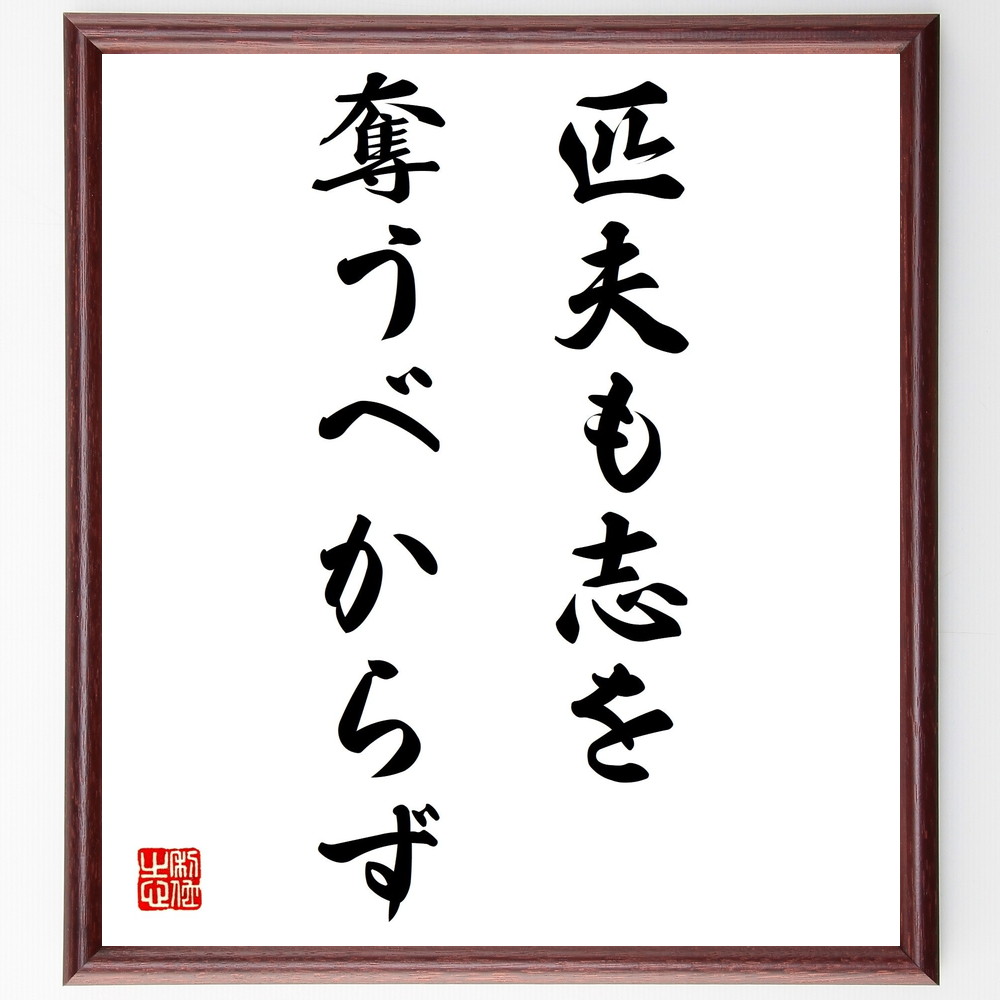 匹夫も志を
奪うべからず